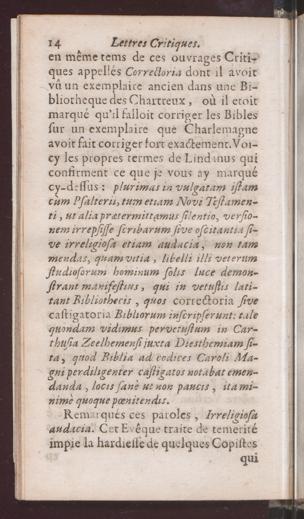 14 Lettres Critiques.
en même tems de ces ouvrages Criti-
ques appellés Correctoria dont il avoit
vû un exemplaire ancien dans une Bi-
bliotheque des Chartreux, où il etoit
marqué qu'il falloit corriger les Bibles
sur un exemplaire que Charlemagne
avoit fait corriger fort exactement. Voi-
cy les propres termes de Lindanus qui
confirment ce que je vous ay marqué
cy-dessus: plurimas in vulgatam istam
cùm Psalterii, tum etiam Novi Testamen-
ti, ut alia prætermittamus silentio, versio-
nem irrepsisse scribarum sive oscitantia si-
ve irreligiosa etiam audacia, non tam
mendas, quam vitia, libelli illi veterum
studiosorum hominum solis luce demon-
strant manifestius, qui in vetustis lati-
tant Bibliothecis, quos correctoria sive
castigatoria Bibliorum inscripserunt: tale
quondam vidimus pervetustum in Car-
thusia Zeelhemensi juxta Diesthemiam si-
ta, quod Biblia ad codices Caroli Ma-
gni perdiligenter castigatos notabat emen-
danda, locis sanè ut non paucis, ita mi-
nimè quoque pœnitendis.
Remarqués ces paroles, Irreligiosa
audacia. Cet Evêque traite de temerité
impie la hardiesse de quelques Copistes
qui